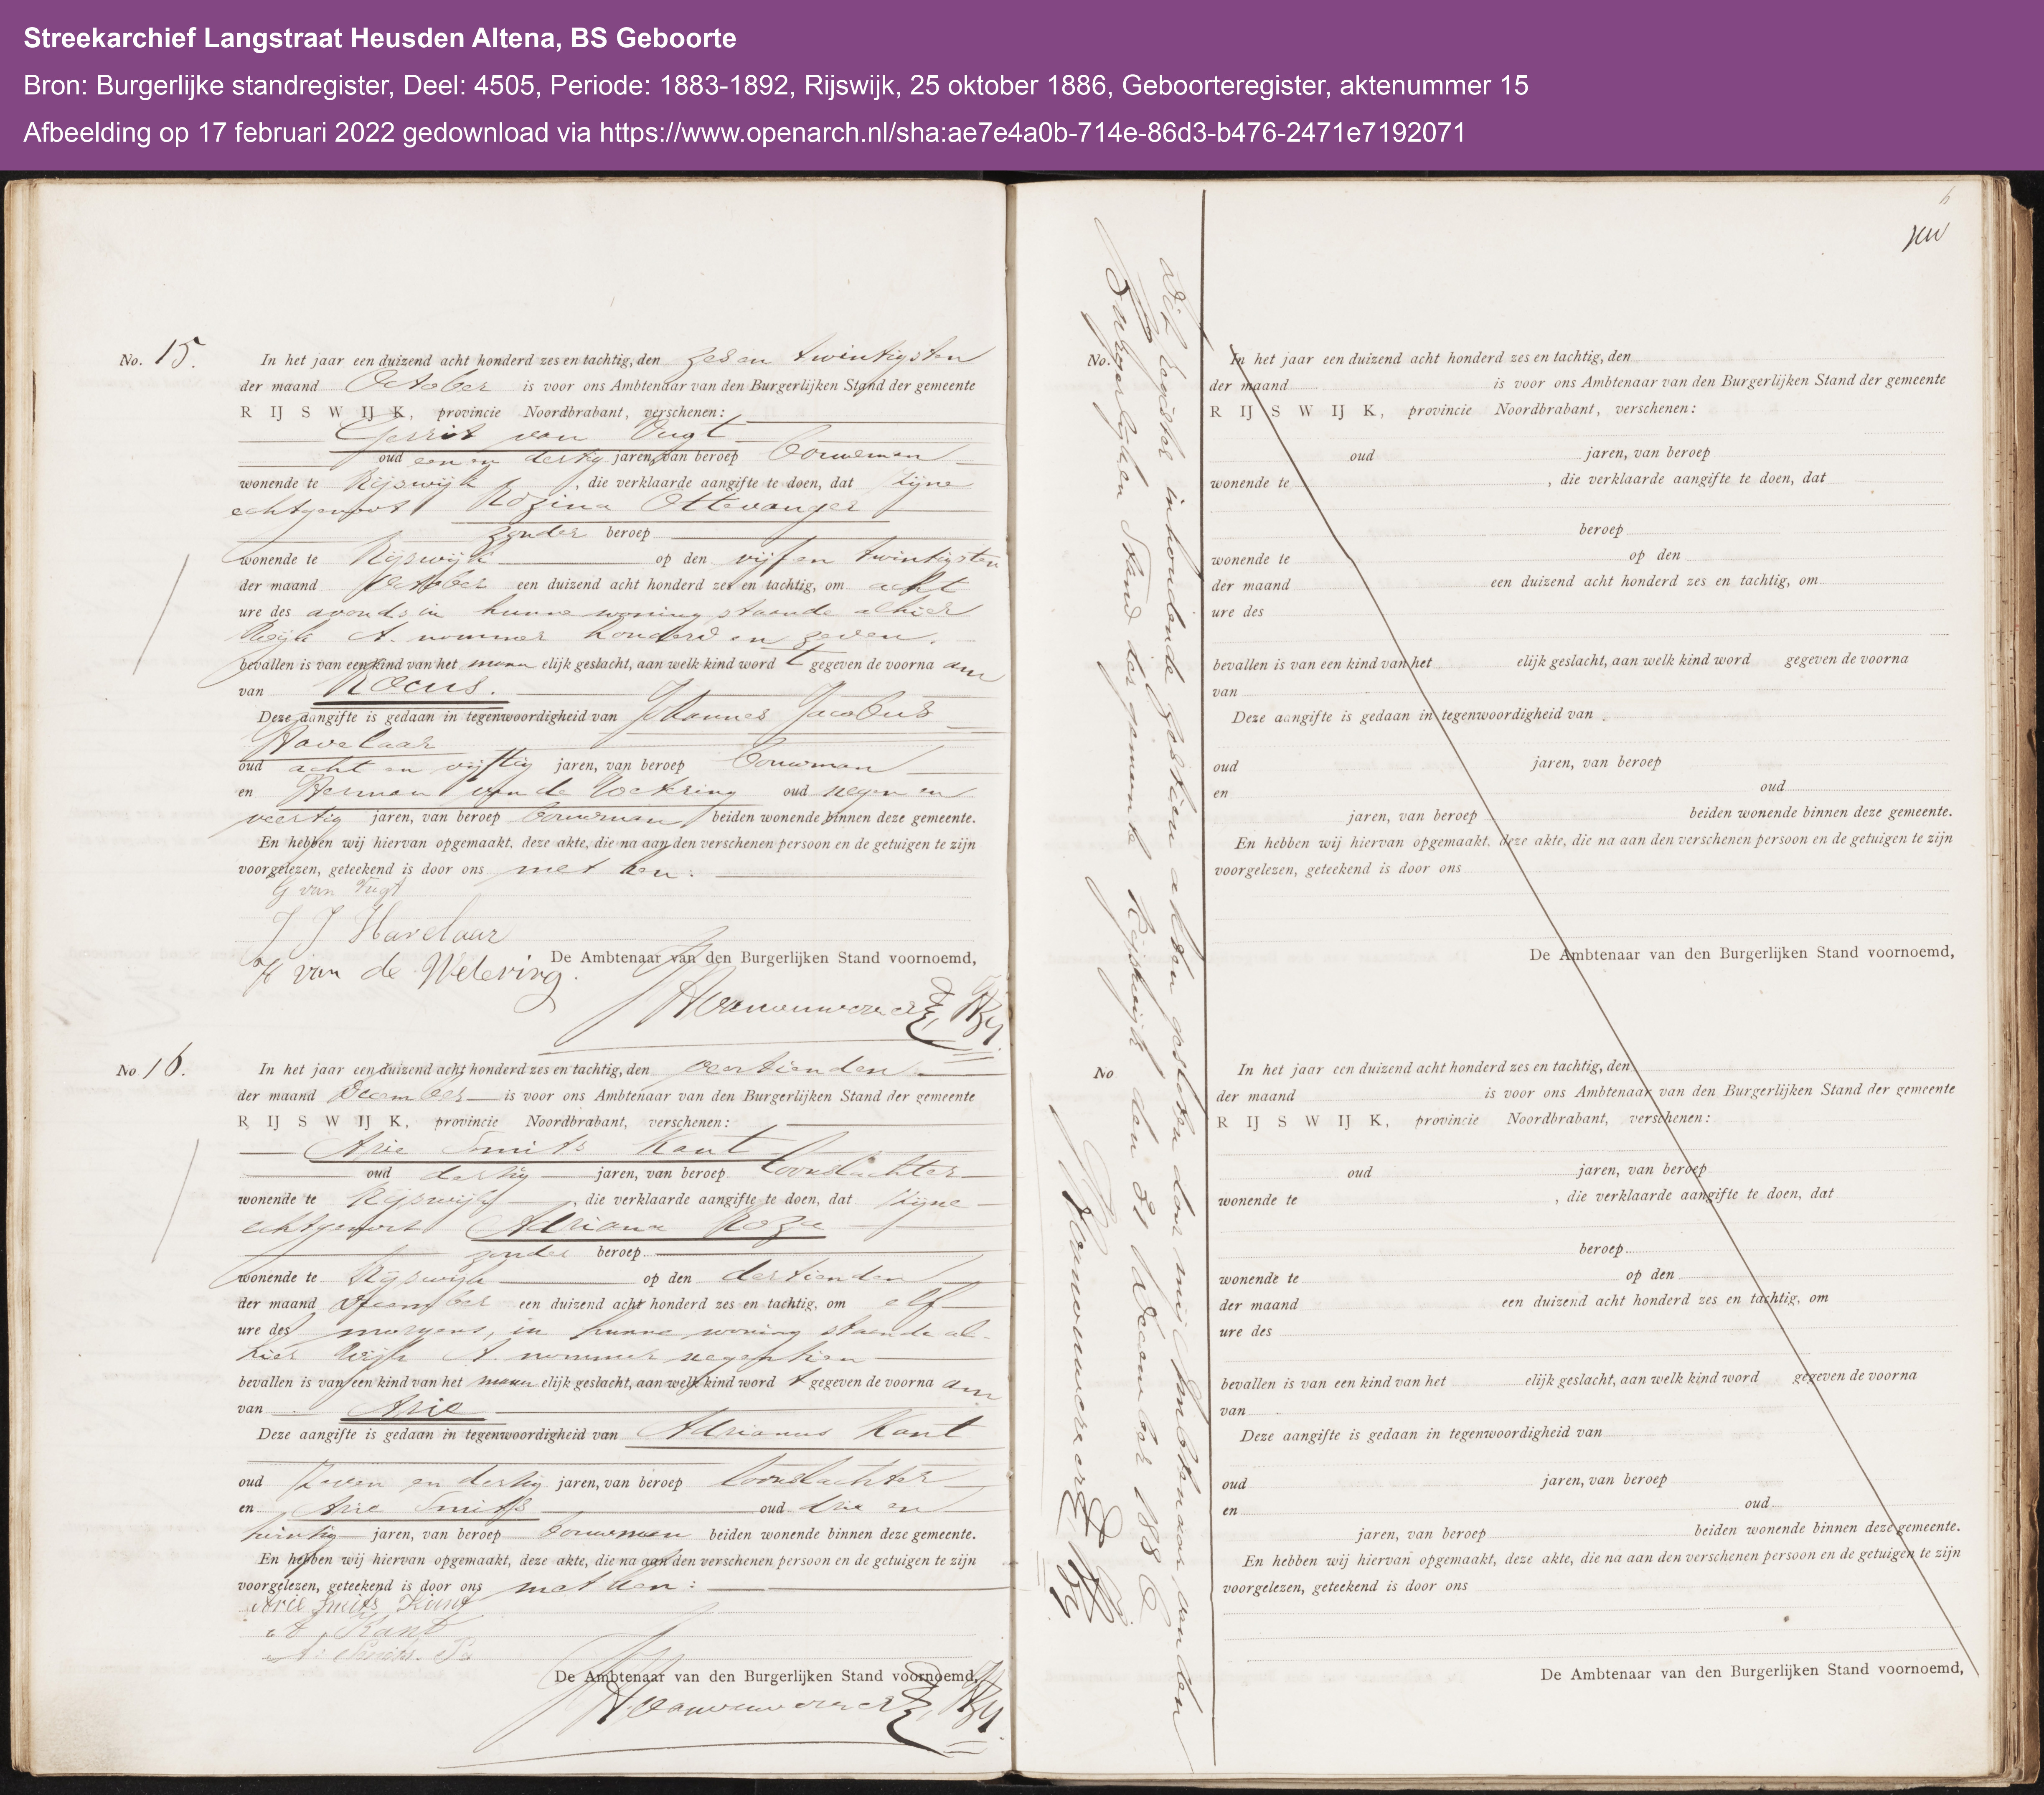 Streekarchief Langstraat Heusden Altena, BS Geboorte
Bron: Burgerlijke standregister, Deel: 4505, Periode: 1883-1892, Rijswijk, 25 oktober 1886, Geboorteregister, aktenummer 15
Afbeelding op 17 februari 2022 gedownload via https://www.openarch.nl/sha:ae7e4a0b-714e-86d3-b476-2471e7192071
No. 15. In het jaar een duizend acht honderd zes en tachtig, den zes en twintigsten
der maand October is voor ons Ambtenaar van den Burgerlijken Stand der gemeente
RIJSWIJK, provincie Noordbrabant, verschenen:
Gerrit van Vugt
oud een en dertig jaren, van beroep bouwman
wonende te Rijswijk, die verklaarde aangifte te doen, dat zijne
echtgenoot Rozina Ottevanger
zonder beroep
wonende te Rijswijk op den vijf en twintigsten
der maand October een duizend acht honderd zes en tachtig, om acht
ure des avonds in hunne woning staande alhier
Wijk A. nommer honderd en zeven.
bevallen is van een kind van het mann elijk geslacht, aan welk kind word t gegeven de voorna am
van Rocus.
Deze aangifte is gedaan in tegenwoordigheid van Johannes Jacobus
Havelaar
oud acht en vijftig jaren, van beroep bouwman
en Herman van de Wetering oud negen en
veertig jaren, van beroep bouwman beiden wonende binnen deze gemeente.
En hebben wij hiervan opgemaakt, deze akte, die na aan den verschenen persoon en de getuigen te zijn
voorgelezen, geteekend is door ons met hen:
G van Vugt
J J Havelaar
H van de Wetering.
De Ambtenaar van den Burgerlijken Stand voornoemd,
No 16. In het jaar een duizend acht honderd zes en tachtig, den veertienden
der maand December is voor ons Ambtenaar van den Burgerlijken Stand der gemeente
RIJSWIJK, provincie Noordbrabant, verschenen:
Arie Smits Kant
oud dertig jaren, van beroep
wonende te Rijswijk, die verklaarde aangifte te doen, dat zijne
echtgenoot Adriana Roza
zonder beroep
wonende te Rijswijk op den dertienden
der maand December een duizend acht honderd zes en tachtig, om elf
ure des morgens, in hunne woning staande al-
hier Wijk A. nommer negentien
bevallen is van een kind van het mann elijk geslacht, aan welk kind word t gegeven de voorna am
van Arie
Deze aangifte is gedaan in tegenwoordigheid van Adrianus Kant
oud zeven en dertig jaren, van beroep
en Arie Smits oud drie en
twintig jaren, van beroep bouwman beiden wonende binnen deze gemeente.
En hebben wij hiervan opgemaakt, deze akte, die na aan den verschenen persoon en de getuigen te zijn
voorgelezen, geteekend is door ons met hen:
Arie Smits Kant
A Kant
A. Smits
De Ambtenaar van den Burgerlijken Stand voornoemd,
Dit register inhoudende zestien akten gesloten door mij Ambtenaar van den
Burgerlijken Stand der gemeente Rijswijk den 31 December 1886
No. In het jaar een duizend acht honderd zes en tachtig, den
der maand is voor ons Ambtenaar van den Burgerlijken Stand der gemeente
RIJSWIJK, provincie Noordbrabant, verschenen:
oud jaren, van beroep
wonende te , die verklaarde aangifte te doen, dat
beroep
wonende te op den
der maand een duizend acht honderd zes en tachtig, om
ure des
bevallen is van een kind van het elijk geslacht, aan welk kind word gegeven de voorna
van
Deze aangifte is gedaan in tegenwoordigheid van
oud jaren, van beroep
en oud
jaren, van beroep beiden wonende binnen deze gemeente.
En hebben wij hiervan opgemaakt, deze akte, die na aan den verschenen persoon en de getuigen te zijn
voorgelezen, geteekend is door ons
De Ambtenaar van den Burgerlijken Stand voornoemd,
No In het jaar een duizend acht honderd zes en tachtig, den
der maand is voor ons Ambtenaar van den Burgerlijken Stand der gemeente
RIJSWIJK, provincie Noordbrabant, verschenen:
oud jaren, van beroep
wonende te , die verklaarde aangifte te doen, dat
beroep
wonende te op den
der maand een duizend acht honderd zes en tachtig, om
ure des
bevallen is van een kind van het elijk geslacht, aan welk kind word gegeven de voorna
van
Deze aangifte is gedaan in tegenwoordigheid van
oud jaren, van beroep
en oud
jaren, van beroep beiden wonende binnen deze gemeente.
En hebben wij hiervan opgemaakt, deze akte, die na aan den verschenen persoon en de getuigen te zijn
voorgelezen, geteekend is door ons
De Ambtenaar van den Burgerlijken Stand voornoemd,